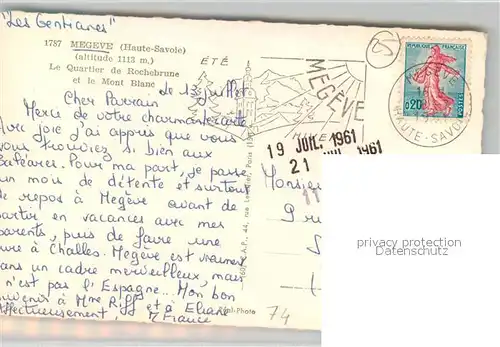 "Les Gentianes"
1787 MEGEVE (Haute-Savoie)
(altitude 1113 m.)
Le Quartier de Rochebrune
et le Mont Blanc
ÉTÉ
MEGÈVE
HIVER
REPUBLIQUE FRANÇAISE
0,20
POSTES
HAUTE-SAVOIE
19 JUIL. 1961
21 1961
Le 13 juillet
Cher Parrain
Merci de votre charmante carte
avec joie j'ai appris que vous
vous trouviez si bien aux
Baléares. Pour ma part, je passe
un mois de détente et surtout
de repos à Megève avant de
partir en vacances avec mes
parents, puis de faire une
cure à Challes. Megève est vraiment
dans un cadre merveilleux, mais
n'est pas l'Espagne... Mon bon
souvenir à Mme Riff et à Eliane
affectueusement, M France
Monsieur
74
privacy protection
watermark